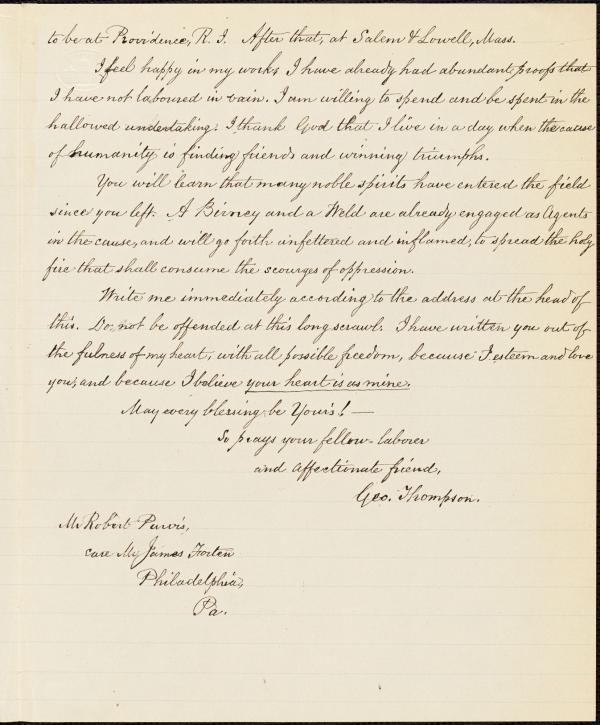 to be at Providence, R. I. After that, at Salem & Lowell, Mass.
I feel happy in my work, I have already had abundant proofs that
I have not laboured in vain. I am willing to spend and be spent in the
hallowed undertaking. I thank God that I live in a day when the cause
of humanity is finding friends and winning triumphs.
You will learn that many noble spirits have entered the field
since you left. A Birney and a Weld are already engaged as Agents
in the cause, and will go forth unfettered and inflamed, to spread the holy
fire that shall consume the scourges of oppression.
Write me immediately according to the address at the head of
this. Do not be offended at this long scrawl. I have written you out of
the fulness of my heart, with all possible freedom, because I esteem and love
you, and because I believe your heart is as mine.
May every blessing be Yours! —
So prays your fellow-laborer
and affectionate friend,
Geo. Thompson.
Mr Robert Purvis,
care Mr James Forten
Philadelphia,
Pa.